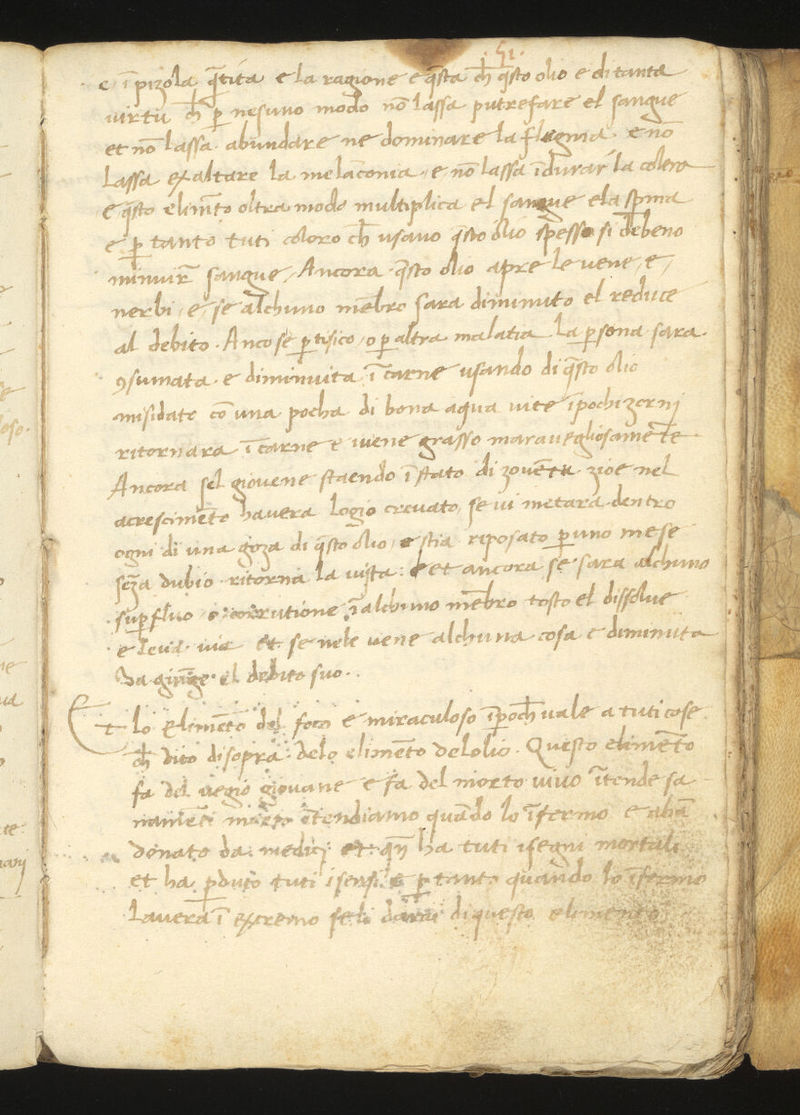 51.
e ĩ pizola q̃tita e la ragione e q̃sta ch̃ q̃sto olio e di tanta
virtu ch̃ p̱ nesuno modo nõ lassa putrefare el sangue
et nõ lassa abundare ne dominare la flegma. e nõ
lassa exaltare la melãconia. e nõ lassa ĩdurar̃ la colera
e q̃sto elimẽto oltra modo multiplica el sangue e la sp̃ma
e p̱ tanto tuti coloro ch̃ usano q̃sto olio spesso si debeno
minuir̃ sangue, Ancora q̃sto olio apre le vene, e,
nerbi, e se alchuno mẽbro sara diminuto el reduce
al debito. Anco se p̱ tisico, o p̱ altra malatia la p̱sona sara.
ꝯsumata. e diminuita ĩ carne usando di q̃sto olio
misidato cõ una pocha di bona aqua vite ĩ pochi zorni
ritornara ĩ carne e vene grasso maravegliosamẽte
Ancora sel giovene staendo ĩ stato di zovẽtu zioe nel
acrescimẽto havera logio crevato, se vi metara dentro
ogni di una goza di q̃sto olio, e stia riposato p̱ uno mese
sẽza dubio. ritorna la vista: e et ancora se sara alchuno
sup̱fluo, o corrutione ĩ alchuno mẽbro tosto el dissolve
e leva via et se nele vene alchuna cosa e diminuta
ragiũge el debito suo..
Et lo elimẽto del foco e miraculoso ĩp̱och̃ vale a tuti cose
ch̃ dito disopra. delo elimẽto delolio. Questo elimẽto
fa del vegio giovane e fa del morto vivo ĩtende sa
namẽte morto ĩtendiamo quãdo lo ĩfermo e abã
donato da. medici, et. qñ ha tuti i segni mortali
et ha p̱duto tuti i sensi e p̱ tanto quando lo ĩfermo
lavera ĩ extremo se li darai di questo elimento